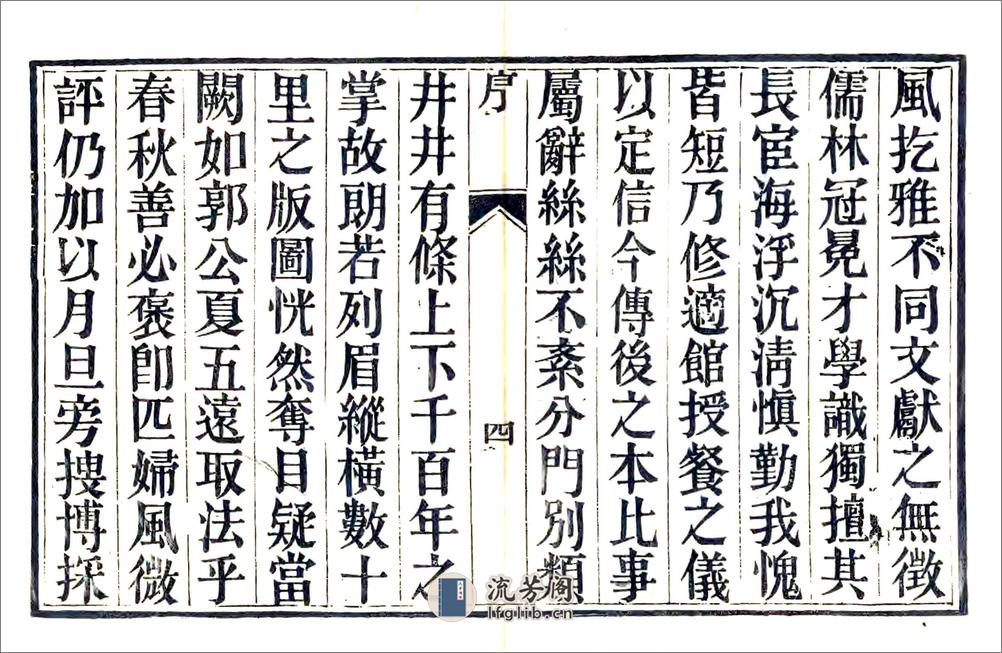 風扢雅不同文獻之無徵
儒林冠冕才學識獨擅其
長宦海浮沉淸愼勤我愧
皆短乃修適館授餐之儀
以定信今傳後之本比事
屬辭絲絲不紊分門別類
序
四
井井有條上下千百年之
掌故朗若列眉縱橫數十
里之版圖恍然奪目疑當
闕如郭公夏五遠取法乎
春秋善必褒卽匹婦風微
評仍加以月旦旁搜博採
流芳閣
lfglib.cn